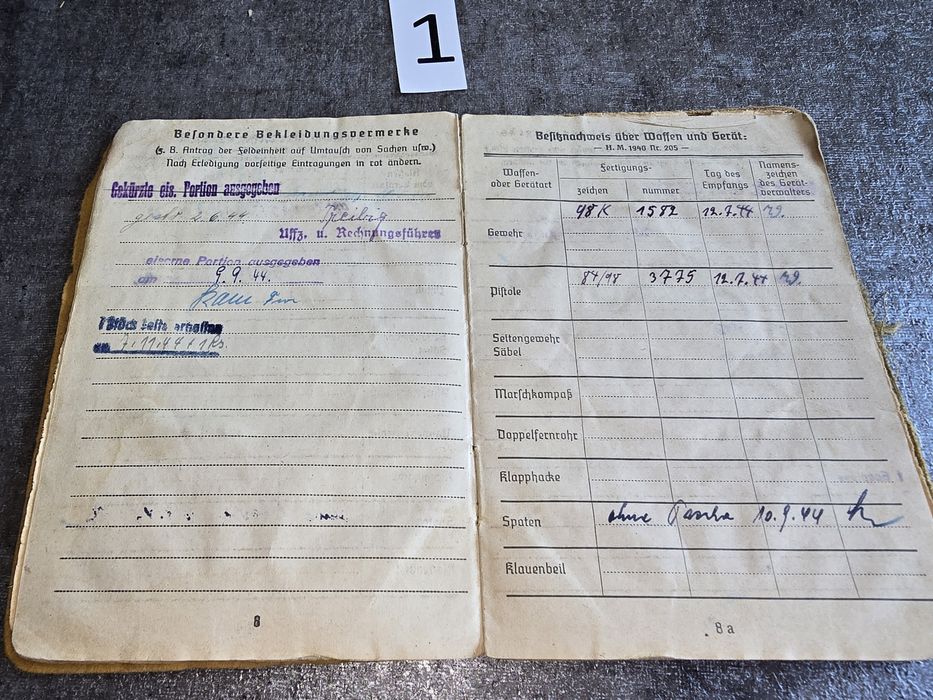 1
Besondere Bekleidungsvermerke
(z. B. Antrag der Feldeinheit auf Umtausch von Sachen usw.)
Nach Erledigung vorseitige Eintragungen in rot ändern.
Gekürzte eis. Portion ausgegeben
2.6.44
Uffz. u. Rechnungsführer
eiserne Portion ausgegeben
am 9.9.44.
1 Stück Seife erhalten
am 7.11.44
8
Besitznachweis über Waffen und Gerät:
— H. M. 1940 Nr. 205 —
Waffen- oder Gerätart
Fertigungs-
zeichen nummer
Tag des Empfangs
Namens- zeichen des Gerät- verwalters
Gewehr 98K 1582 12.7.44
Pistole 84/98 3775 12.7.44
Seitengewehr
Säbel
Marschkompaß
Doppelfernrohr
Klapphacke
Spaten ohne Tasche 10.9.44
Klauenbeil
8a